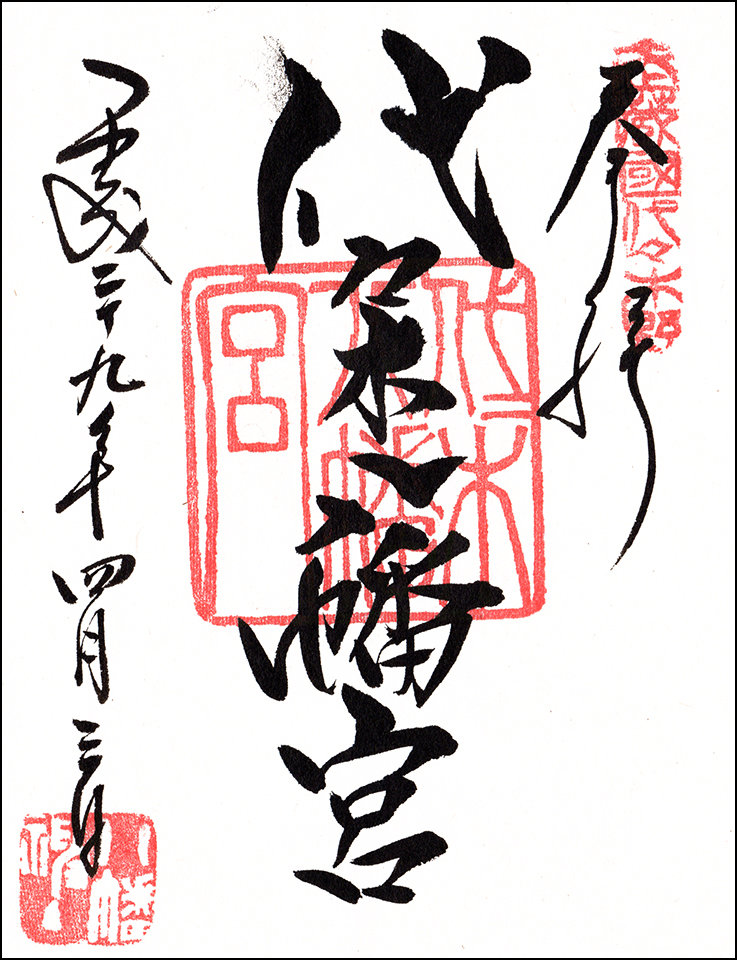 武蔵國代々木郷
奉拝
代々木八幡宮
代々木八幡宮
平成二十九年四月三日
八幡